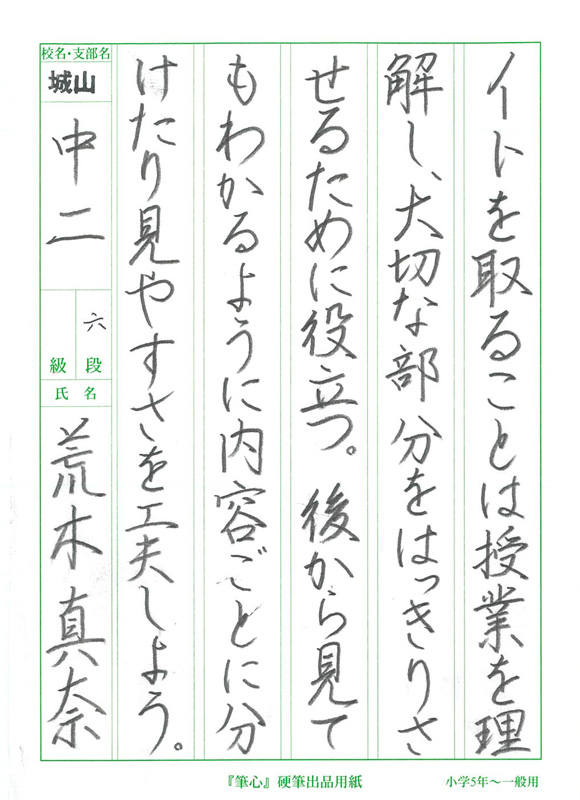 イトを取ることは授業を理
解し、大切な部分をはっきりさ
せるために役立つ。後から見て
もわかるように内容ごとに分
けたり見やすさを工夫しよう。
校名・支部名
城山
中二
六
段
級
氏名
荒木真奈
『筆心』硬筆出品用紙
小学5年〜一般用